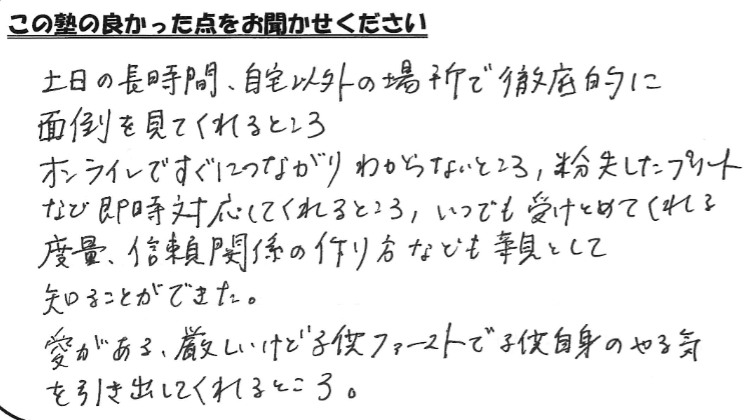 この塾の良かった点をお聞かせください
土日の長時間、自宅以外の場所で徹底的に
面倒を見てくれるところ
オンラインですぐにつながりわからないところ,紛失したプリント
など即時対応してくれるところ,いつでも受けとめてくれる
度量、信頼関係の作り方なども親として
知ることができた。
愛がある、厳しいけど子供ファーストで子供自身のやる気
を引き出してくれるところ。